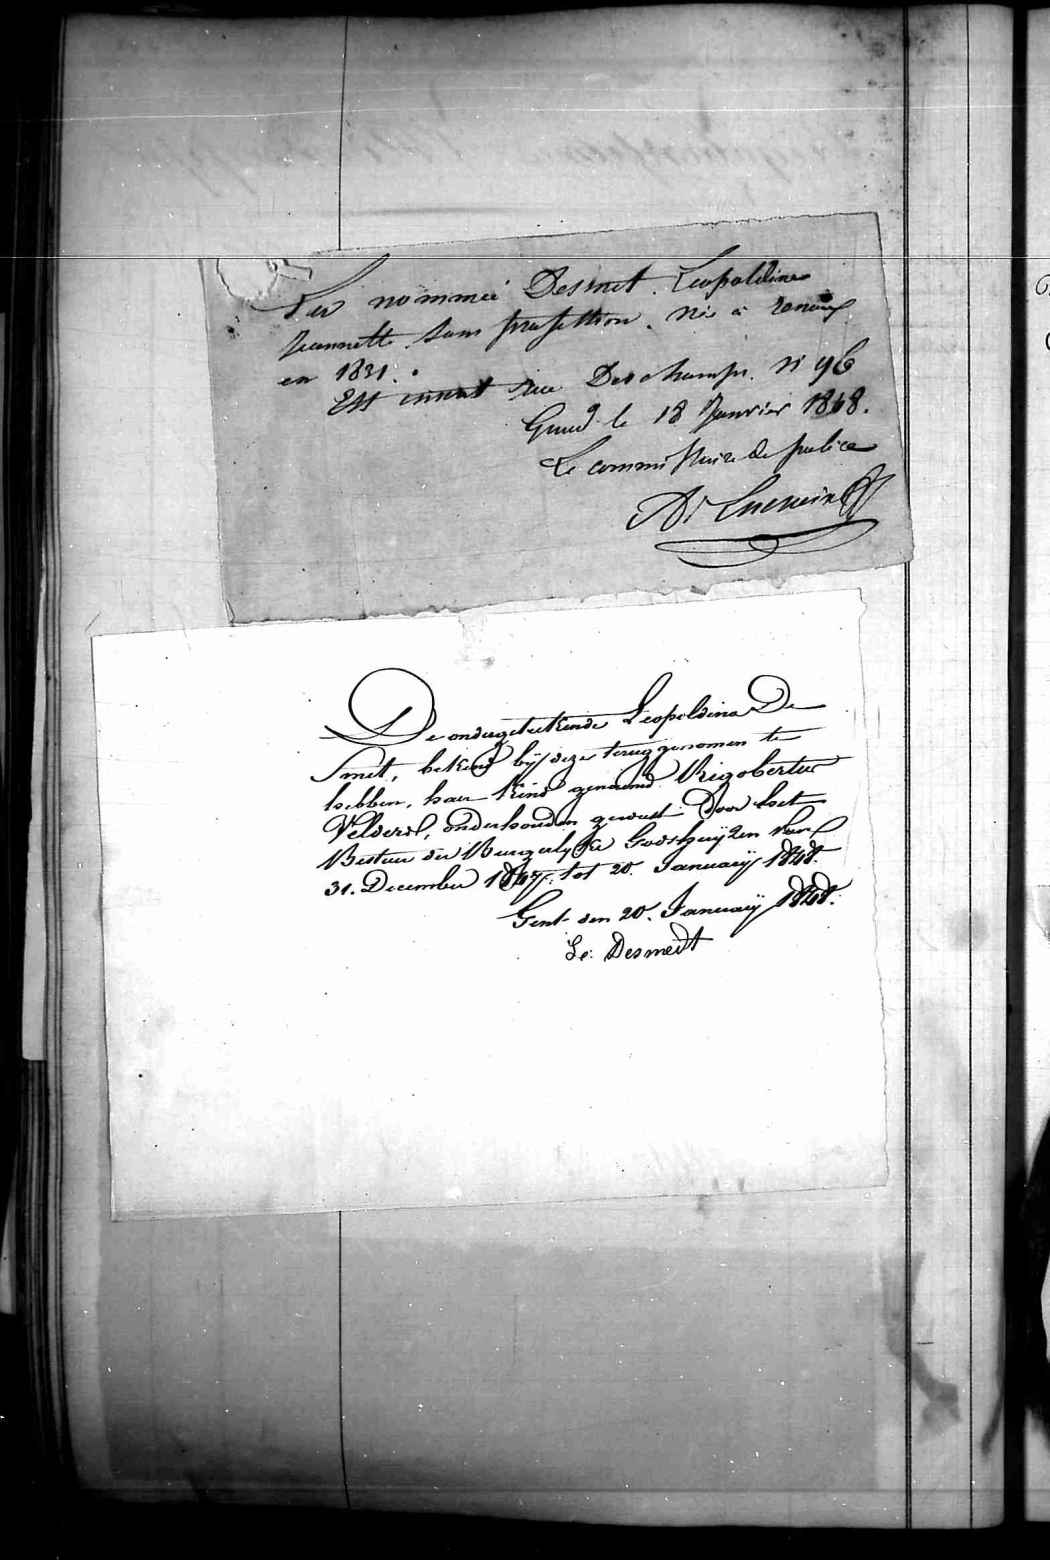 La nommée Desmet Leopoldine
Jeannette. Sans profession. Née à renaix
en 1821.
Est inscrit rue Deschamps. N° 96
Gand le 18 Janvier 1848.
Le commissaire de police
De ondergeteekende Leopoldina De
Smet, bekend bij deze terug genomen te
hebben, haer kind genaemd Rigobertus
Velders, onderhouden geweest door het
Bestuer der Burgerlyke Godshuyzen van
31. December 1847. tot 20. January 1848.
Gent den 20. January 1848.
Le. Desmedt